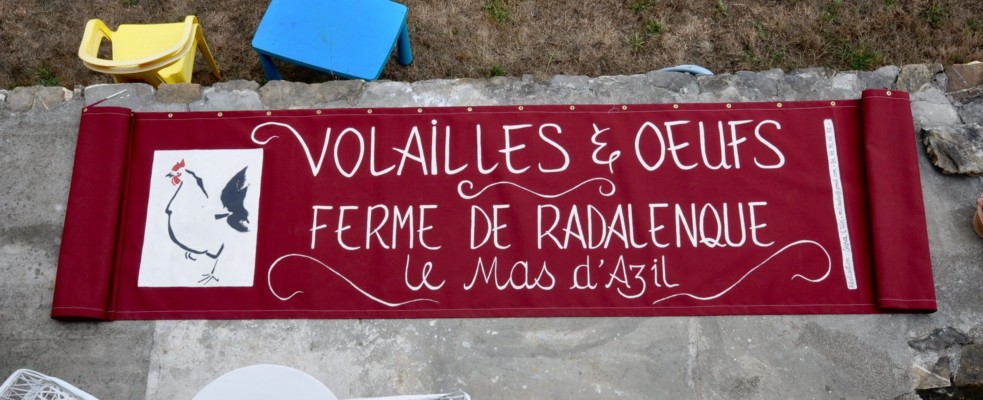 VOLAILLES & OEUFS
FERME DE RADALENQUE
le Mas d'Azil